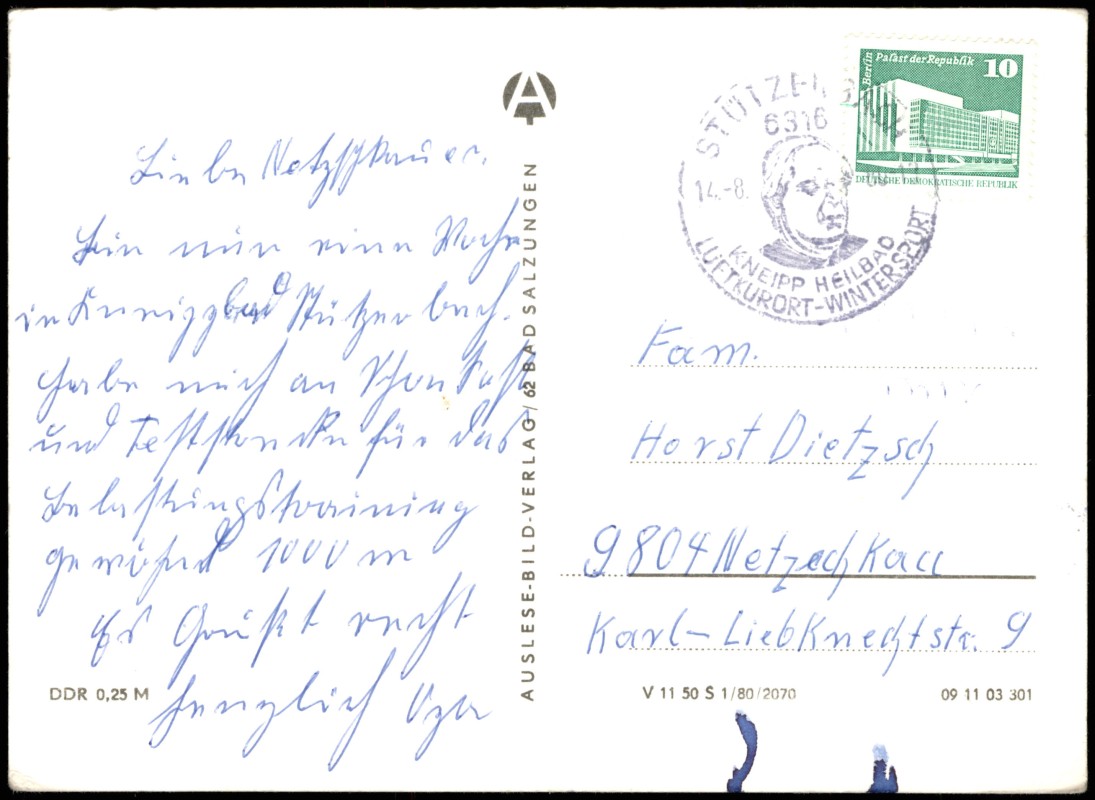 Liebe Netzschkauer.
Bin nun eine Woche
in Kneippbad Stützerbach.
habe mich an Schonkost
und Teststrecke für das
Belastungstraining
gewöhnt 1000 m
Es Grüßt recht
herzlich Opa
DDR 0,25 M
AUSLESE-BILD-VERLAG/62 BAD SALZUNGEN
Berlin
Palast der Republik
10
DEUTSCHE DEMOKRATISCHE REPUBLIK
STÜTZERBACH
6316
14.-8.
KNEIPP HEILBAD
LUFTKURORT-WINTERSPORT
Fam.
Horst Dietzsch
9804 Netzschkau
Karl-Liebknechtstr. 9
V 11 50 S 1/80/2070
09 11 03 301